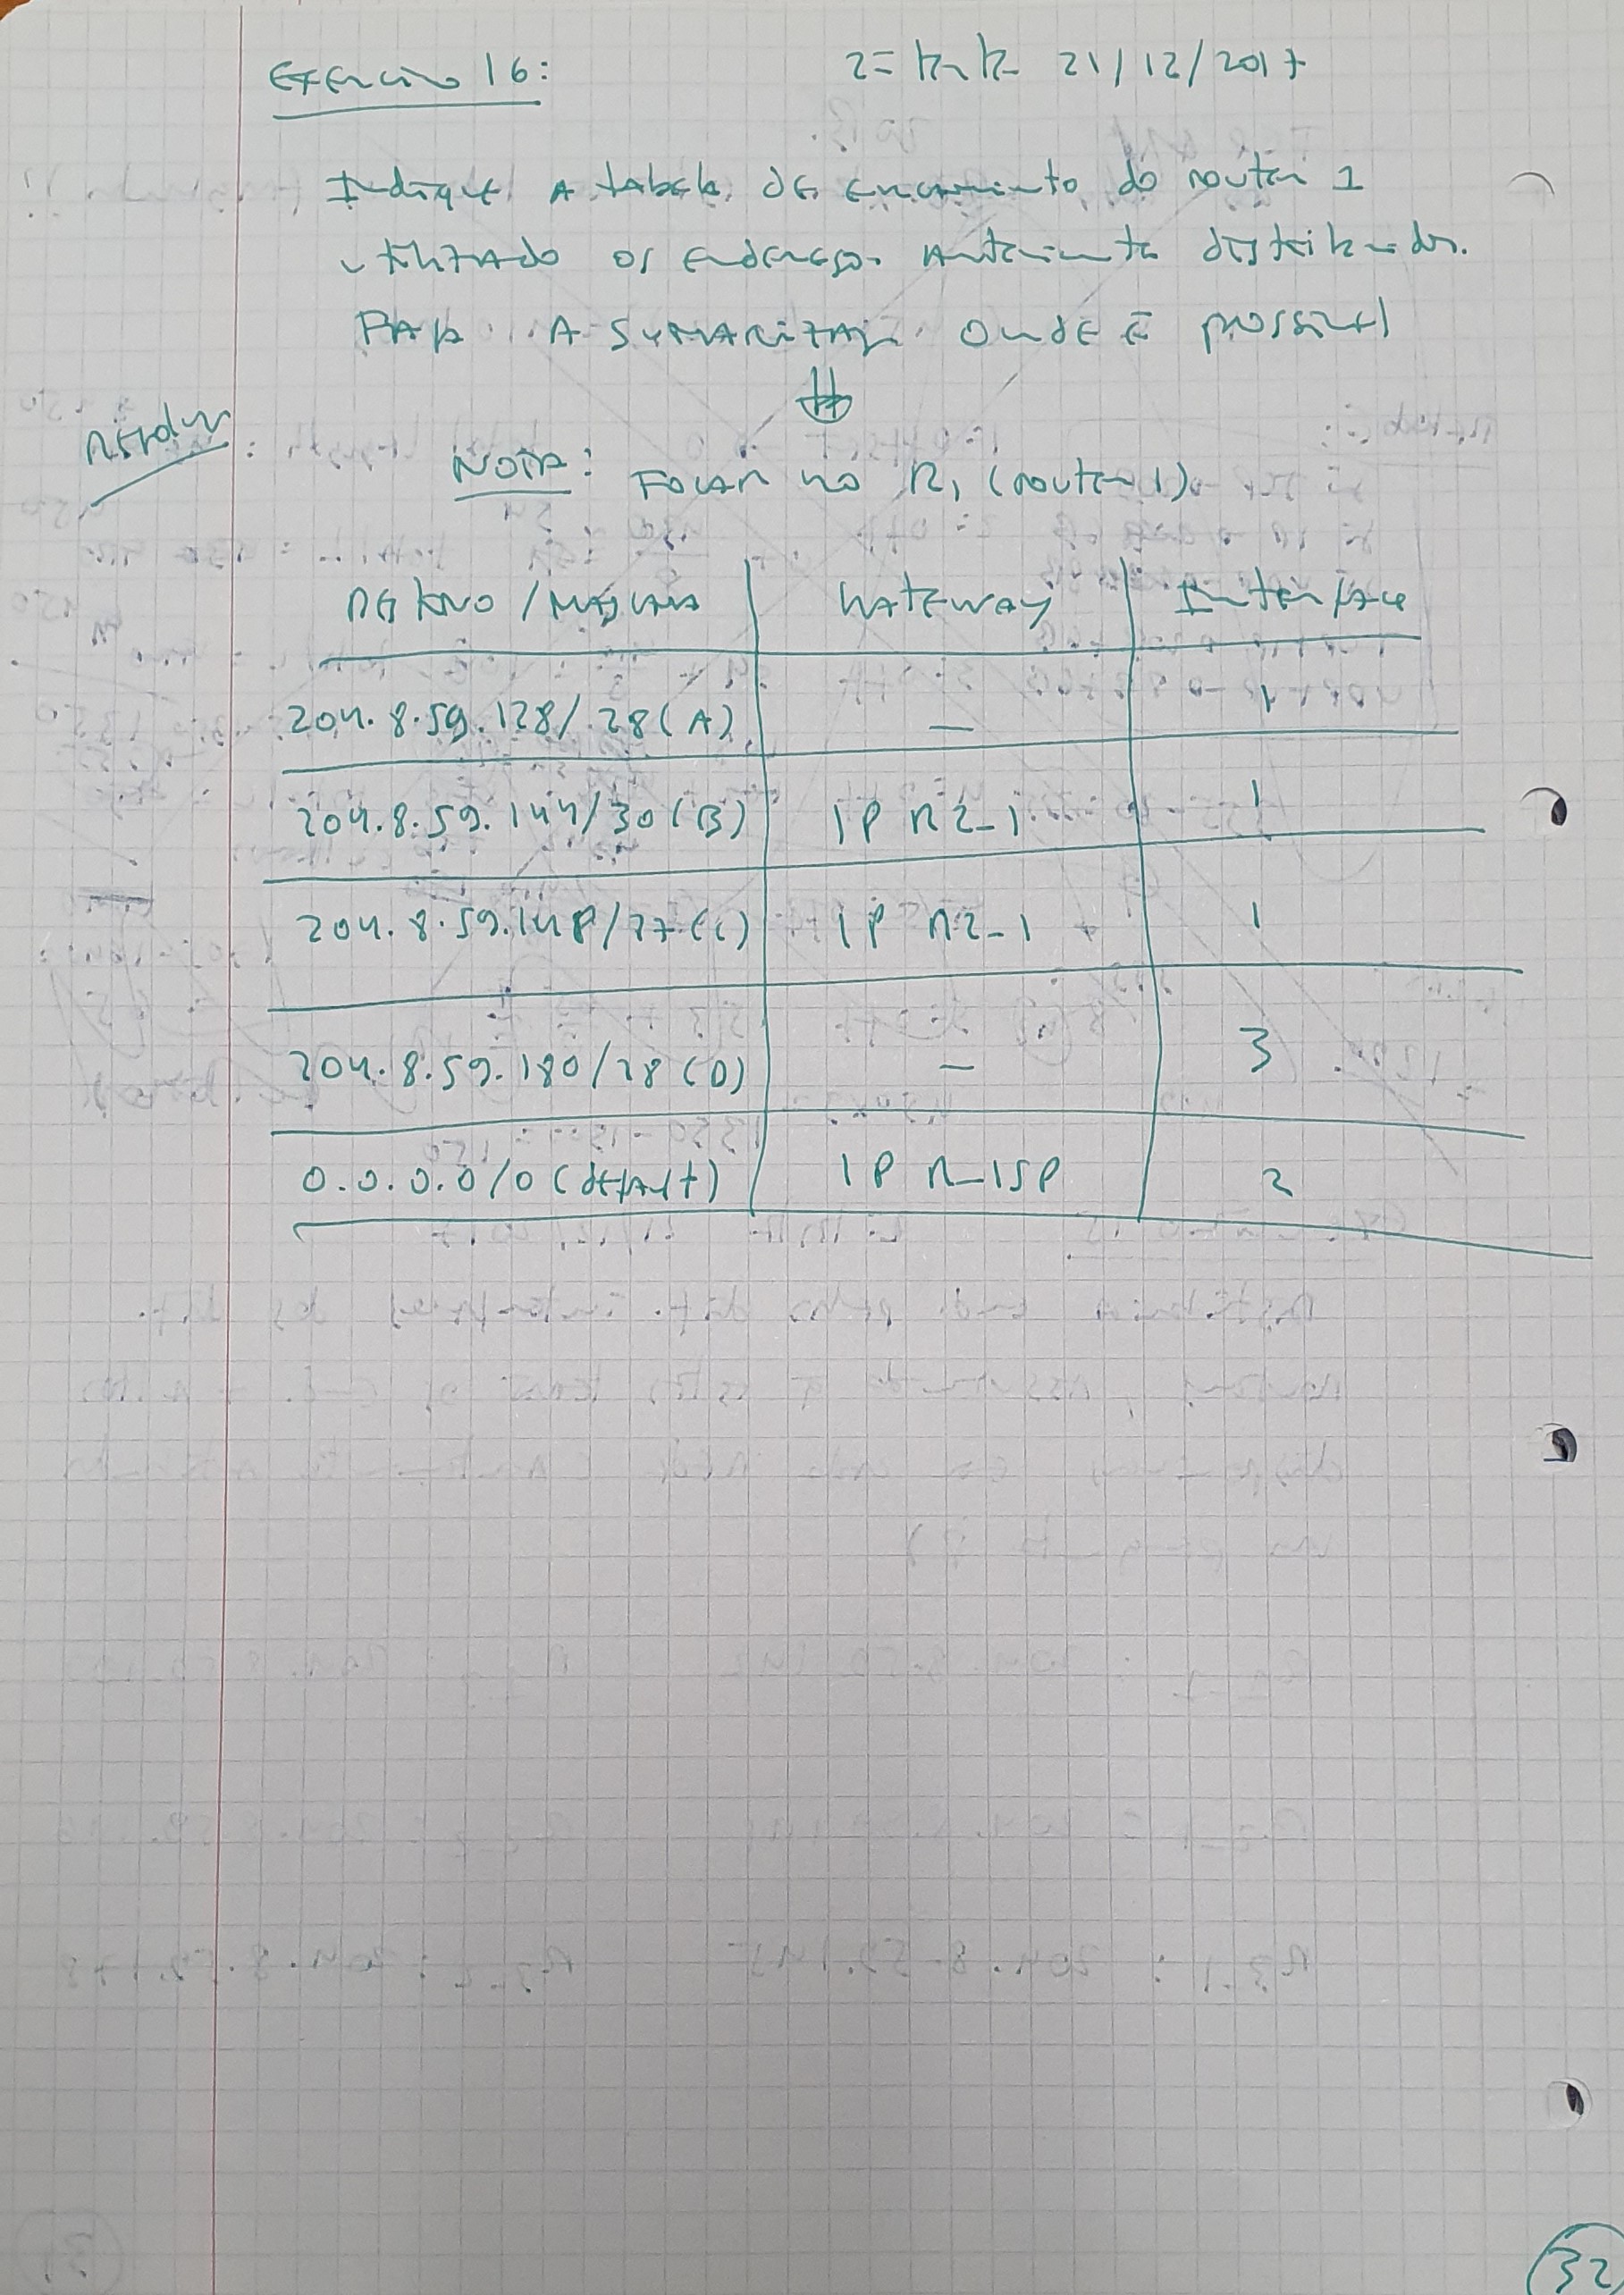 Exercício 16:
21/12/2017
Indique a tabela de encaminhamento do router 1
utilizado os endereços anteriormente distribuidos.
Faça a sumarização onde é possivel
Resolução
NOTA: Focar no R1 (router 1)
Destino / Máscara | Gateway | Interface
204.8.59.128/28 (A) | — | 1
204.8.59.144/30 (B) | IP R2_1 | 1
204.8.59.148/27 (C) | IP R2_1 | 1
204.8.59.180/28 (D) | — | 3
0.0.0.0/0 (default) | IP R_ISP | 2
32